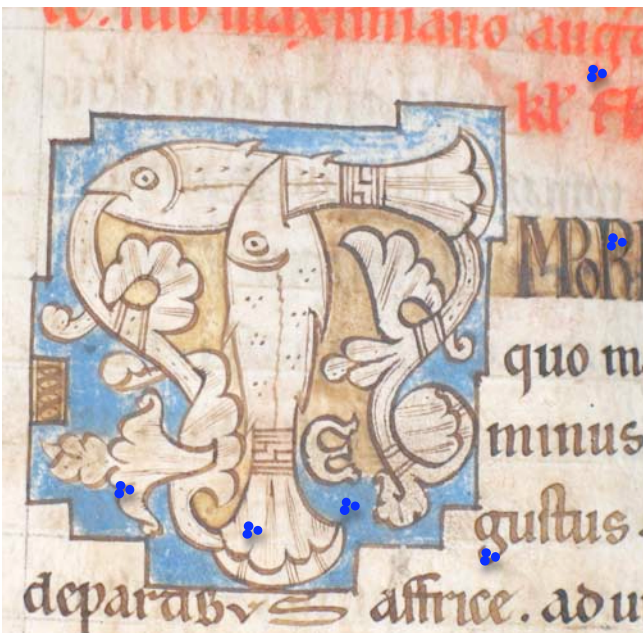 sub maximiano aug
kl'
TE MPORI
quo m
minus
guſtus
departibvS affrice. ad u